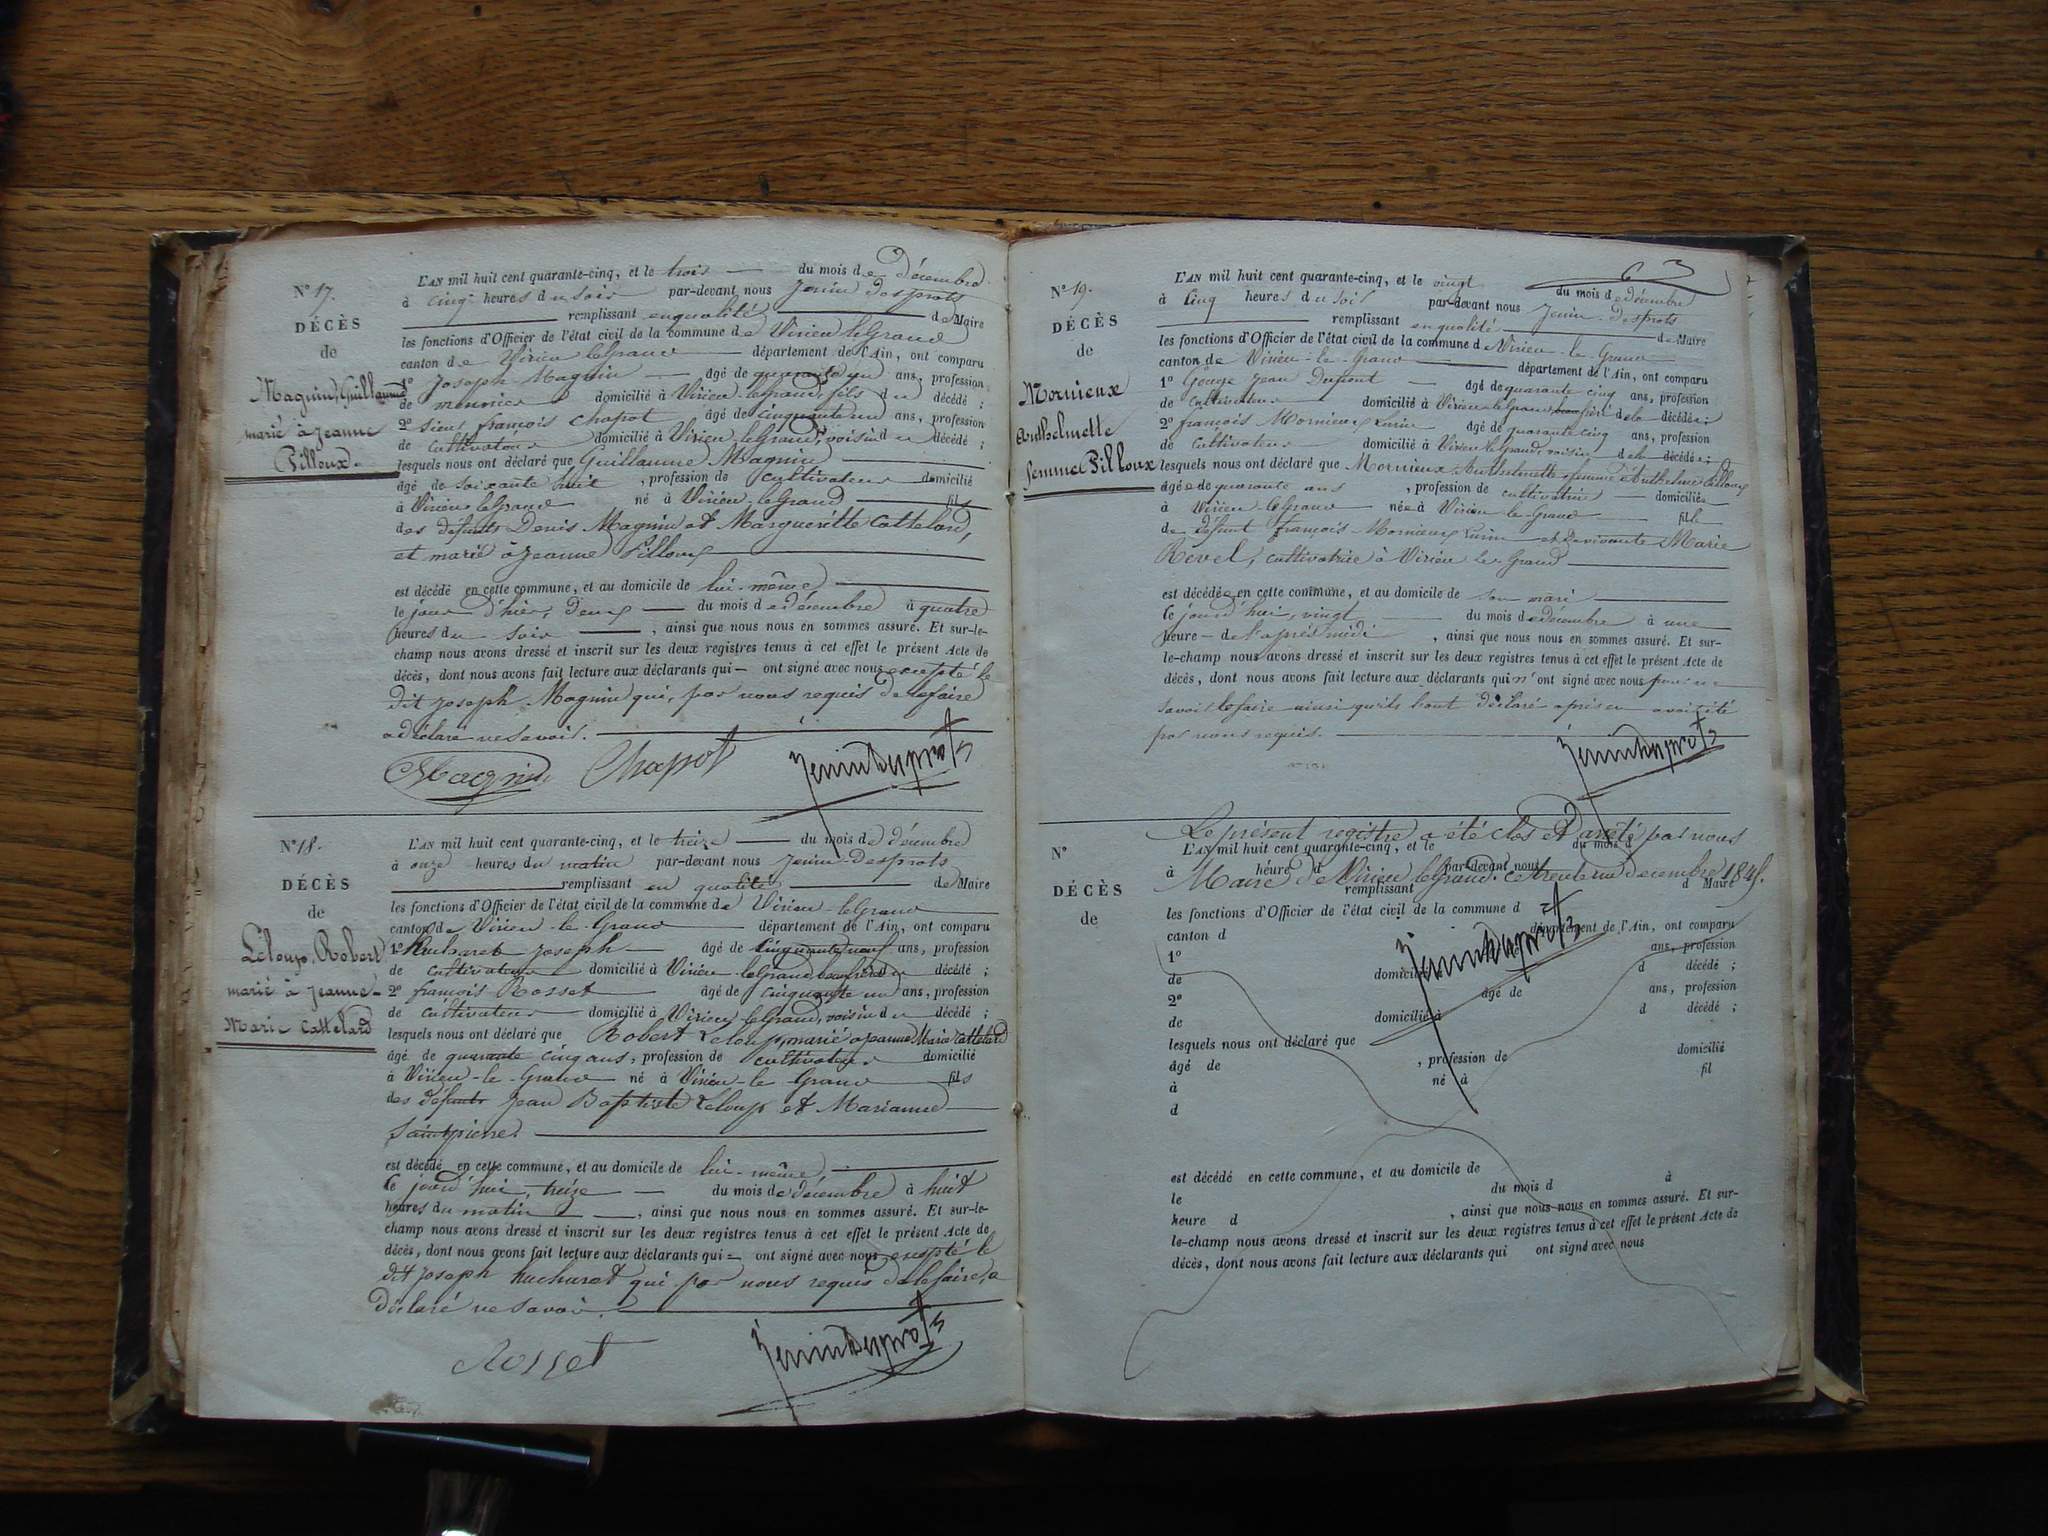 N° 17.
DÉCÈS
de
Magnin, Guillaume
marié à Jeanne
Pilloux.
L'AN mil huit cent quarante-cinq, et le trois du mois de Décembre
à cinq heures du soir par-devant nous Jenin Desprots
remplissant en qualité de Maire
les fonctions d'Officier de l'état civil de la commune de Virieu le Grand
canton de Virieu le Grand département de l'Ain, ont comparu
1° Joseph Magnin âgé de quarante un ans, profession
de meunier domicilié à Virieu le grand, fils du décédé ;
2° Sieur françois Chapot âgé de cinquante un ans, profession
de cultivateur domicilié à Virieu le Grand, voisin du décédé ;
lesquels nous ont déclaré que Guillaume Magnin
âgé de soixante huit , profession de cultivateur domicilié
à Virieu le Grand né à Virieu le Grand fils
des défunts Denis Magnin et Margueritte Cattelard,
et marié à Jeanne Pilloux
est décédé en cette commune, et au domicile de lui-même
le jour d'hier, deux du mois de décembre à quatre
heures du soir , ainsi que nous nous en sommes assuré. Et sur-le-
champ nous avons dressé et inscrit sur les deux registres tenus à cet effet le présent Acte de
décès, dont nous avons fait lecture aux déclarants qui ont signé avec nous excepté le
dit Joseph Magnin qui, par nous requis de le faire
a déclaré ne savoir.
Magnin Chapot Jenindesprots
N° 18.
DÉCÈS
de
Leloup, Robert
marié à Jeanne-
Marie Cattelard
L'AN mil huit cent quarante-cinq, et le treize du mois de décembre
à onze heures du matin par-devant nous Jenin-Desprots
remplissant en qualité de Maire
les fonctions d'Officier de l'état civil de la commune de Virieu-le Grand
canton de Virieu-le-Grand département de l'Ain, ont comparu
1° Huchard Joseph âgé de cinquante neuf ans, profession
de cultivateur domicilié à Virieu le Grand, beau frère du décédé ;
2° françois Rosset âgé de cinquante un ans, profession
de cultivateur domicilié à Virieu le Grand, voisin du décédé ;
lesquels nous ont déclaré que Robert Leloup, marié à Jeanne Marie Cattelard
âgé de quarante cinq ans, profession de cultivateur domicilié
à Virieu-le-Grand né à Virieu-le-Grand fils
des défunts Jean Baptiste Leloup et Marianne
Saintpierre.
est décédé en cette commune, et au domicile de lui-même
Ce jourd'hui, treize du mois de décembre à huit
heures du matin , ainsi que nous nous en sommes assuré. Et sur-le-
champ nous avons dressé et inscrit sur les deux registres tenus à cet effet le présent Acte de
décès, dont nous avons fait lecture aux déclarants qui ont signé avec nous excepté le
dit Joseph qui par nous requis de le faire, a
déclaré ne savoir.
Rosset Jenindesprots
N° 19.
DÉCÈS
de
Mornieux
Anthelmette
femme Pilloux
L'AN mil huit cent quarante-cinq, et le vingt du mois de décembre
à cinq heures du soir par-devant nous Jenin-Desprots
remplissant en qualité de Maire
les fonctions d'Officier de l'état civil de la commune de Virieu-le-Grand
canton de Virieu-le-Grand département de l'Ain, ont comparu
1° Jean Dupont âgé de quarante cinq ans, profession
de cultivateur domicilié à Virieu-le Grand frère de la décédée ;
2° françois Mornieux âgé de quarante cinq ans, profession
de cultivateur domicilié à Virieu le Grand, voisin de la décédée ;
lesquels nous ont déclaré que Mornieux Anthelmette femme d'Anthelme Pilloux
âgée de quarante ans , profession de cultivatrice domiciliée
à Virieu-le Grand née à Virieu-le-Grand fille
de défunt françois Mornieux et de vivante Marie
Revel, cultivatrice à Virieu le Grand
est décédée en cette commune, et au domicile de son mari
Ce jourd'hui, vingt du mois de décembre à une
heure de l'après midi , ainsi que nous nous en sommes assuré. Et sur-
le-champ nous avons dressé et inscrit sur les deux registres tenus à cet effet le présent Acte de
décès, dont nous avons fait lecture aux déclarants qui n'ont signé avec nous pour ne
savoir le faire ainsi qu'ils l'ont déclaré après en avoir été
par nous requis.
Jenindesprots
Le présent registre a été clos et arrêté par nous
Maire de Virieu le Grand. Ce trente un decembre 1845.
Jenindesprots
N°
DÉCÈS
de
L'AN mil huit cent quarante-cinq, et le du mois d
à heure d par-devant nous
remplissant d Maire
les fonctions d'Officier de l'état civil de la commune d
canton d département de l'Ain, ont comparu
1° ans, profession
de domicilié d décédé ;
2° âgé de ans, profession
de domicilié à d décédé ;
lesquels nous ont déclaré que
âgé de , profession de domicilié
à né à fil
d
est décédé en cette commune, et au domicile de
le du mois d à
heure d , ainsi que nous nous en sommes assuré. Et sur-
le-champ nous avons dressé et inscrit sur les deux registres tenus à cet effet le présent Acte de
décès, dont nous avons fait lecture aux déclarants qui ont signé avec nous